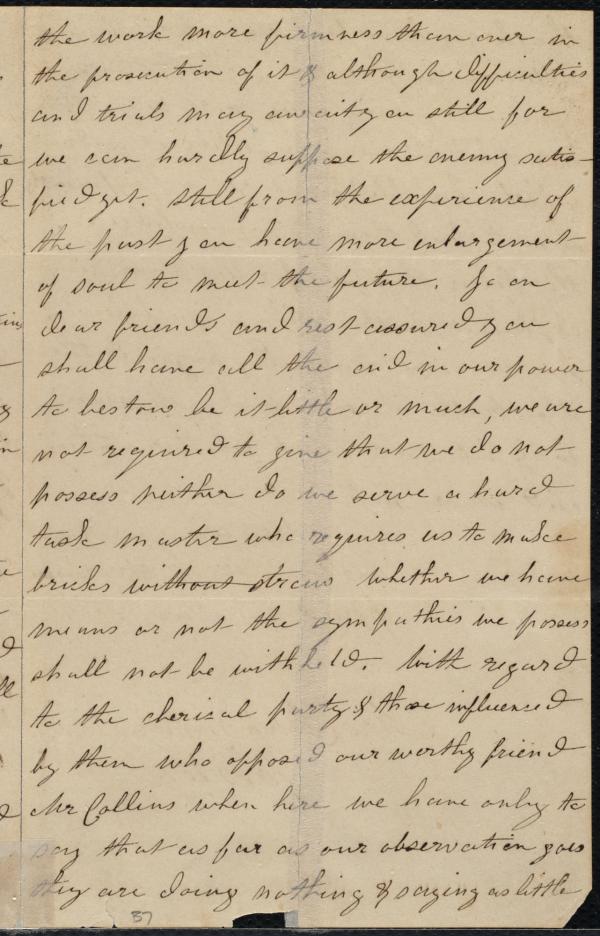 the work more firmness than ever in
the prosecution of it & although difficulties
and trials may await you still for
we can hardly suppose the enemy satis-
fied yet. Still from the experience of
the past you have more enlargement
of soul to meet the future. Go on
dear friends and rest assured you
shall have all the aid in our power
to bestow be it little or much, we are
not required to give that we do not
possess neither do we serve a hard
task master who requires us to make
bricks without straw whether we have
means or not the sympathies we possess
shall not be withheld. With regard
to the clerical party & those influenced
by them who opposed our worthy friend
Mr Collins when here we have only to
say that as far as our observation goes
they are doing nothing & saying as little
37